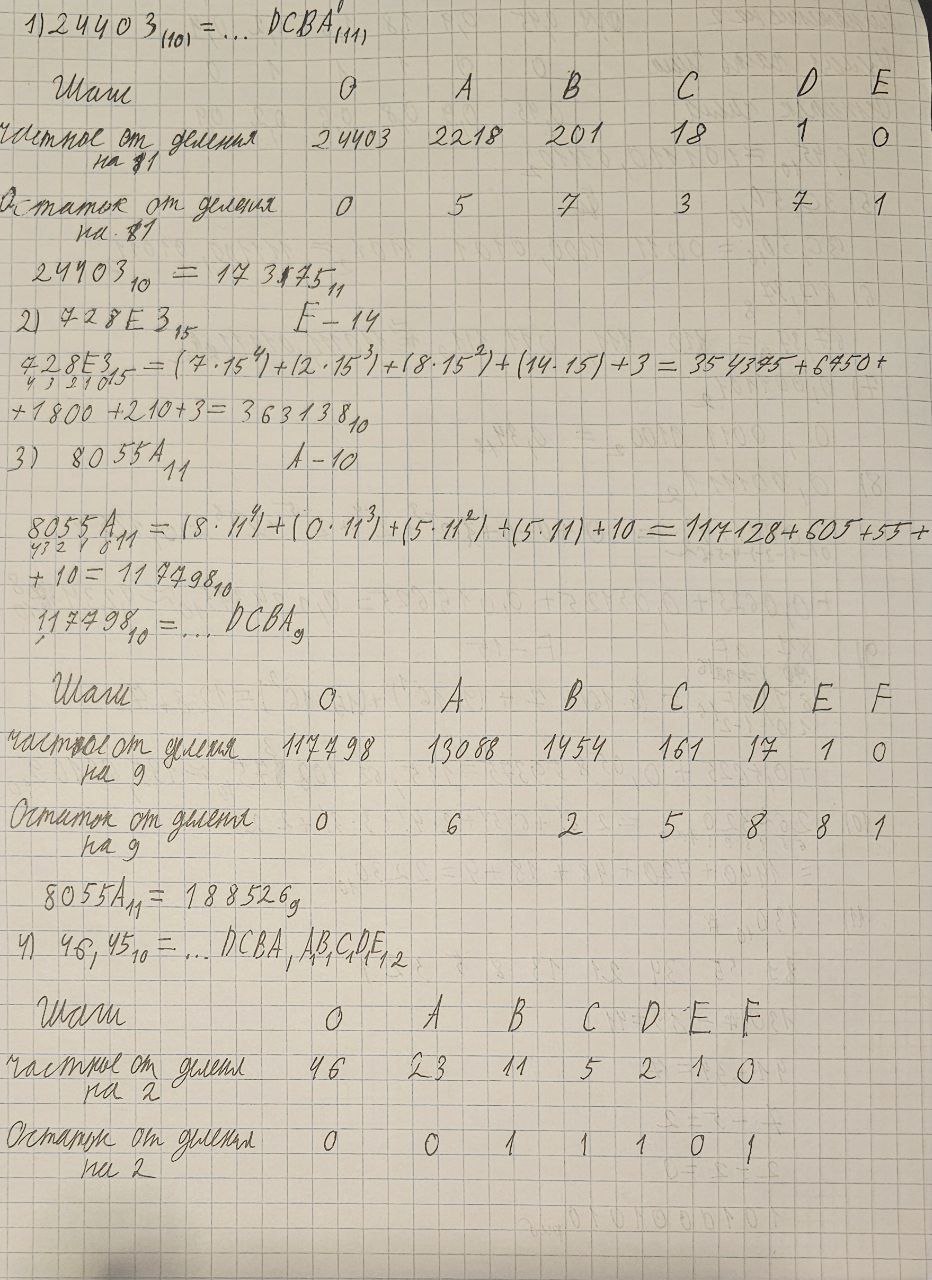 1) 24403(10) = ... DCBA(11)
Шаги 0 A B C D E
частное от деления на 11 24403 2218 201 18 1 0
Остаток от деления на 11 0 5 7 3 7 1
24403₁₀ = 173175₁₁
2) 728E3₁₅ E - 14
728E3₁₅ = (7·15⁴)+(2·15³)+(8·15²)+(14·15)+3 = 354375+6750+
4 3 2 1 0
+1800+210+3= 363138₁₀
3) 8055A₁₁ A - 10
8055A₁₁ = (8·11⁴)+(0·11³)+(5·11²)+(5·11)+10 = 117128+605+55+
4 3 2 1 0
+10= 117798₁₀
117798₁₀ = ... DCBA₉
Шаги 0 A B C D E F
частное от деления на 9 117798 13088 1454 161 17 1 0
Остаток от деления на 9 0 6 2 5 8 8 1
8055A₁₁ = 188526₉
4) 46,45₁₀ = ... DCBA, A₁B₁C₁D₁E₁ ₂
Шаги 0 A B C D E F
частное от деления на 2 46 23 11 5 2 1 0
Остаток от деления на 2 0 0 1 1 1 0 1